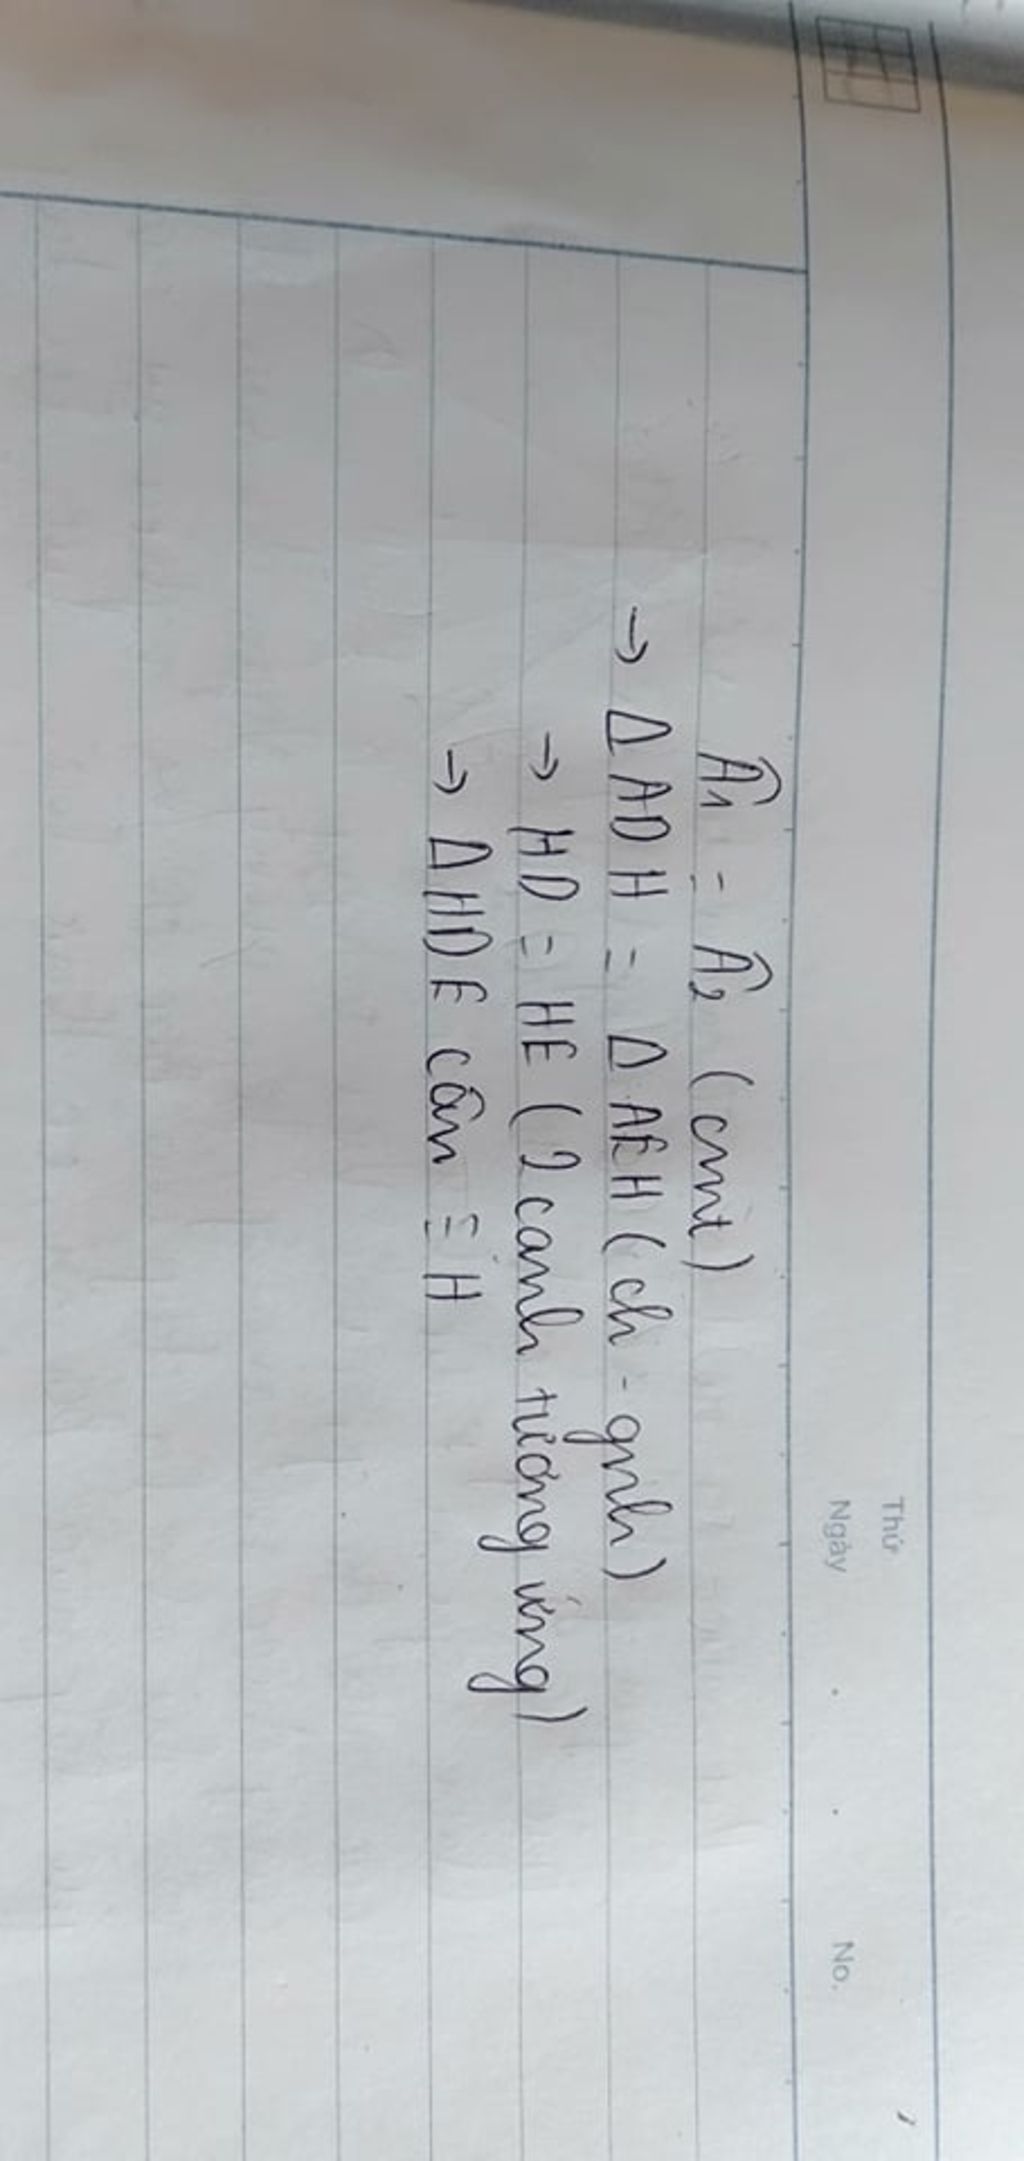 Thứ
Ngày . . No.
Â1 = Â2 (cmt)
→ Δ ADH = Δ AEH (ch - gnh)
→ HD = HE (2 cạnh tương ứng)
→ Δ HDE cân ≡ H